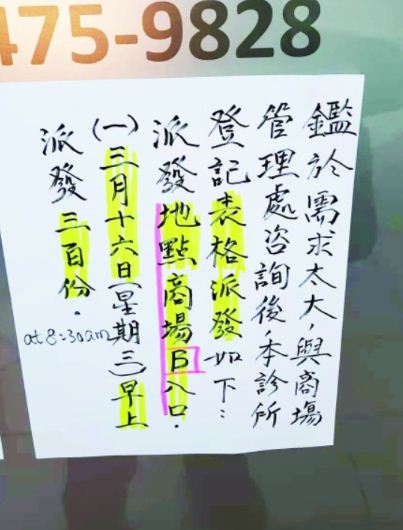 475-9828
鑑於需求太大，與商場
管理處咨詢後，本診所
登記表格派發如下：
派發地點商場B入口．
(一)三月十六日(星期三)早上
at 8:30am
派發三百份．